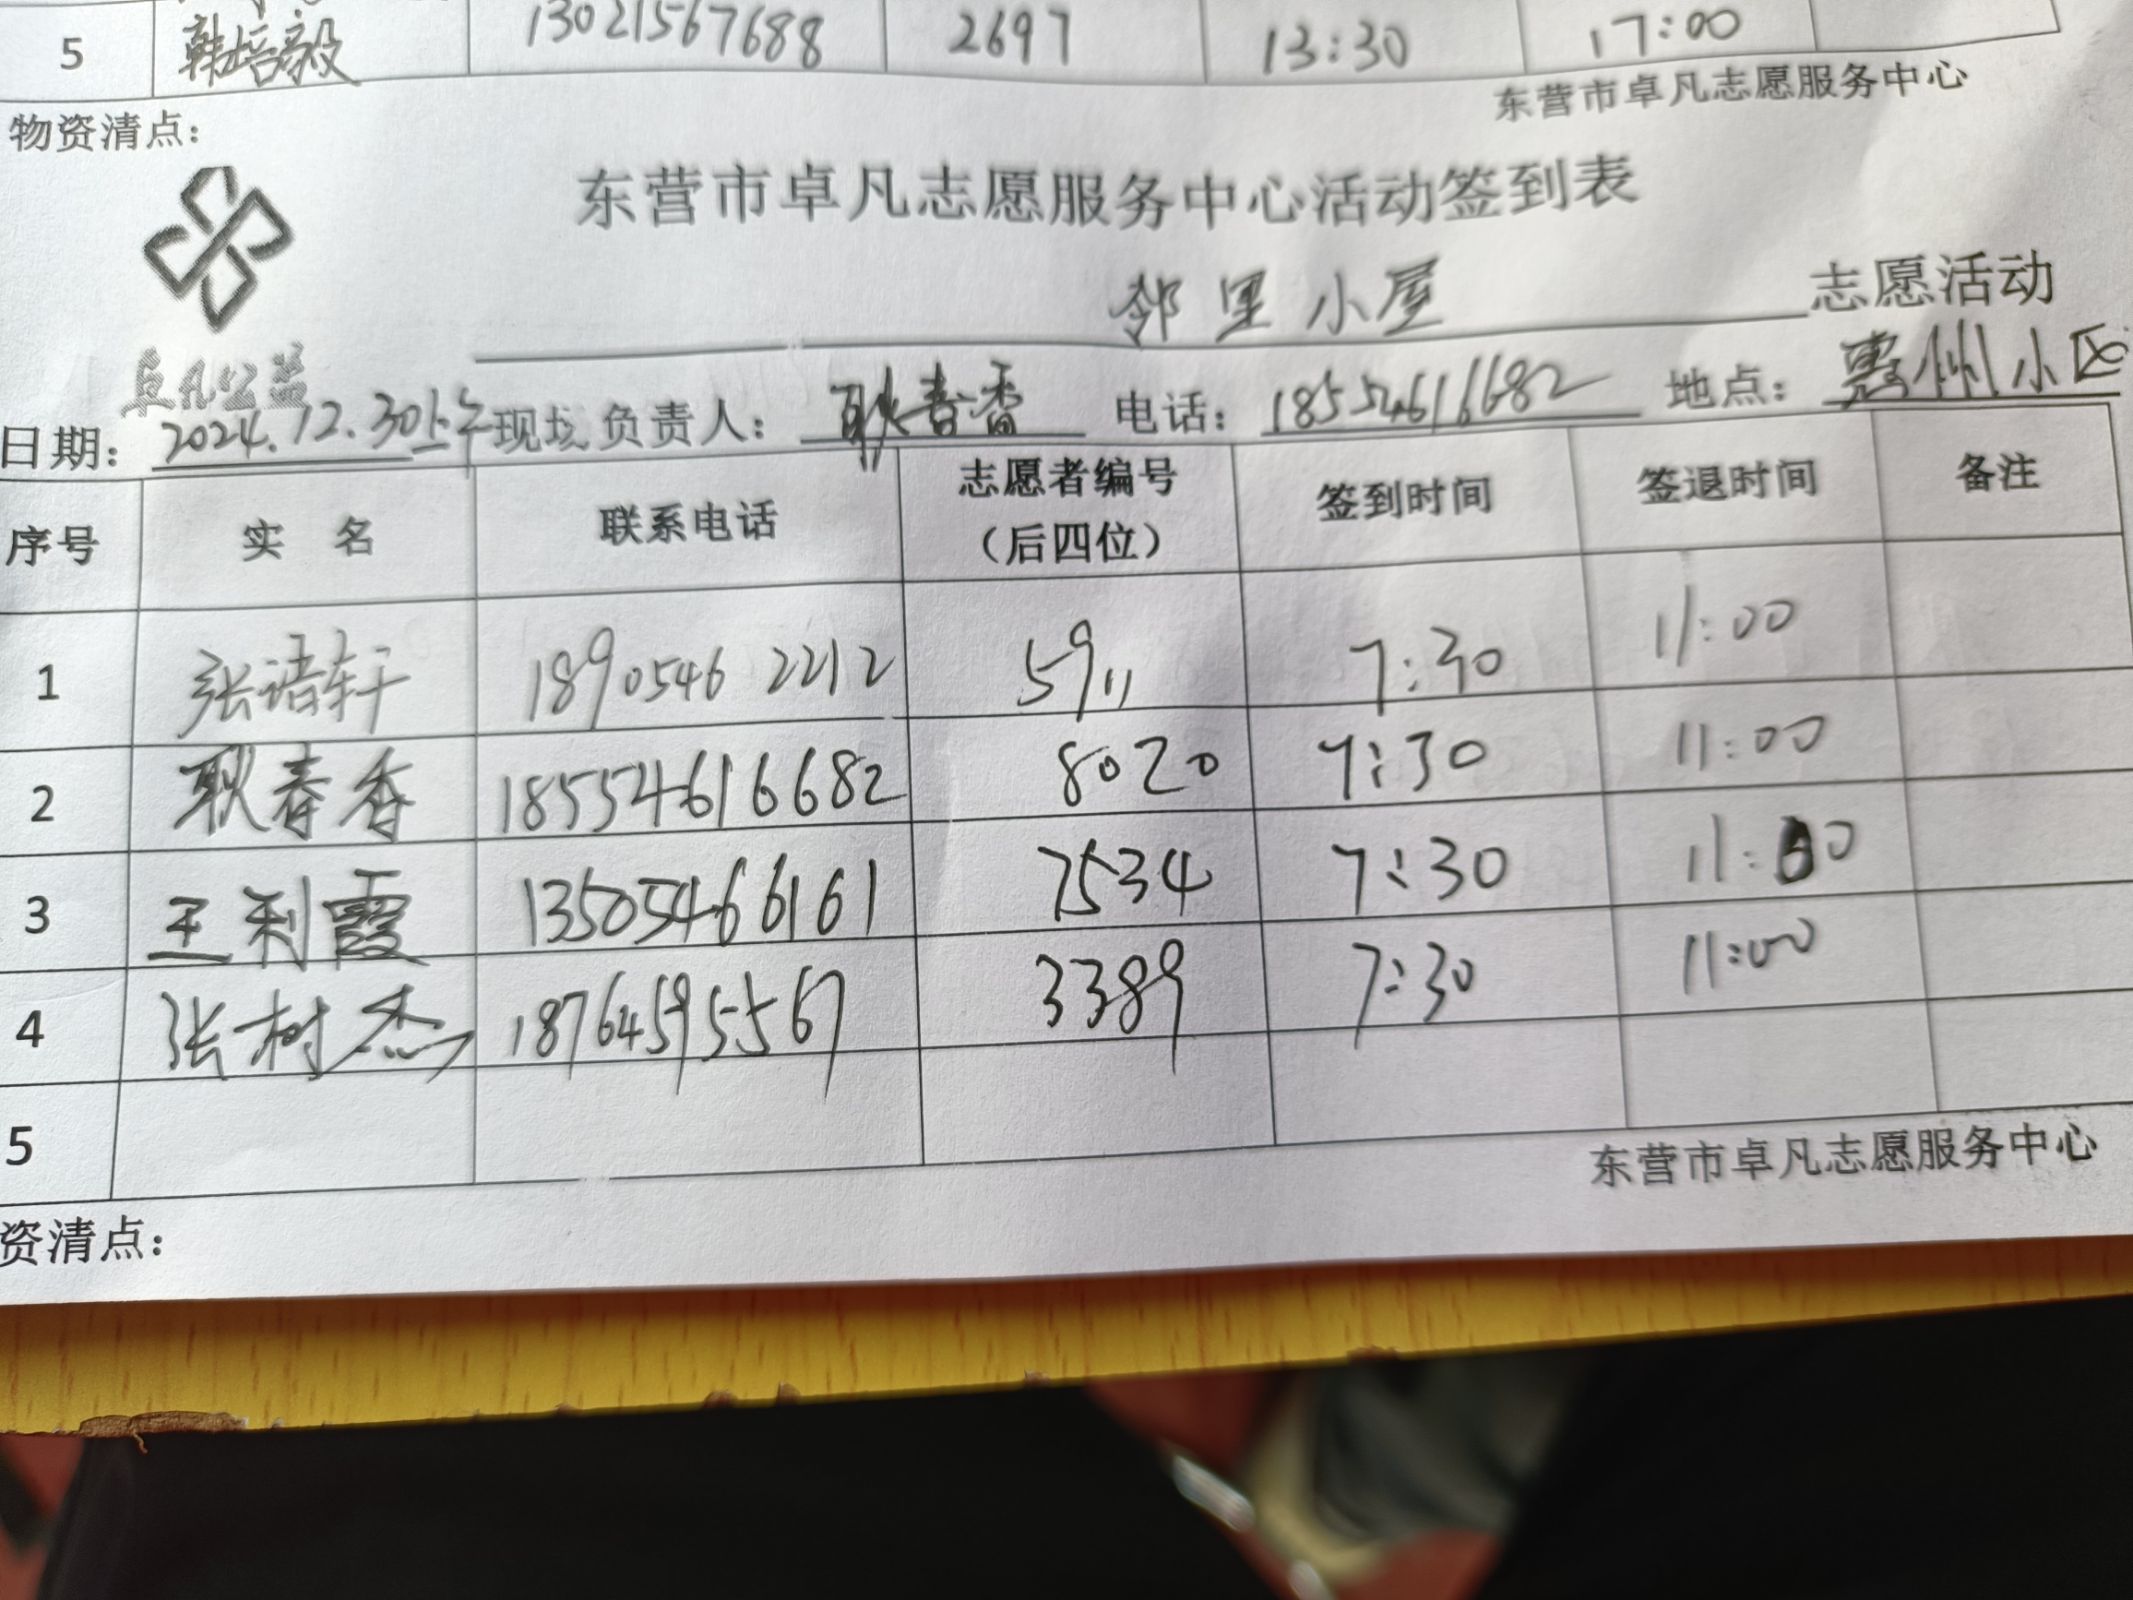 5 韩培毅 13021567688 2697 13:30 17:00
东营市卓凡志愿服务中心
物资清点：
东营市卓凡志愿服务中心活动签到表
邻里小屋 志愿活动
卓凡公益
日期：2024.12.30上午 现场负责人：耿春香 电话：18554616682 地点：惠州小区
序号 实 名 联系电话 志愿者编号（后四位） 签到时间 签退时间 备注
1 张诸轩 18905462212 5911 7:30 11:00
2 耿春香 18554616682 8020 7:30 11:00
3 王利霞 13505466161 7534 7:30 11:00
4 张树杰 18764595567 3389 7:30 11:00
5
东营市卓凡志愿服务中心
资清点：